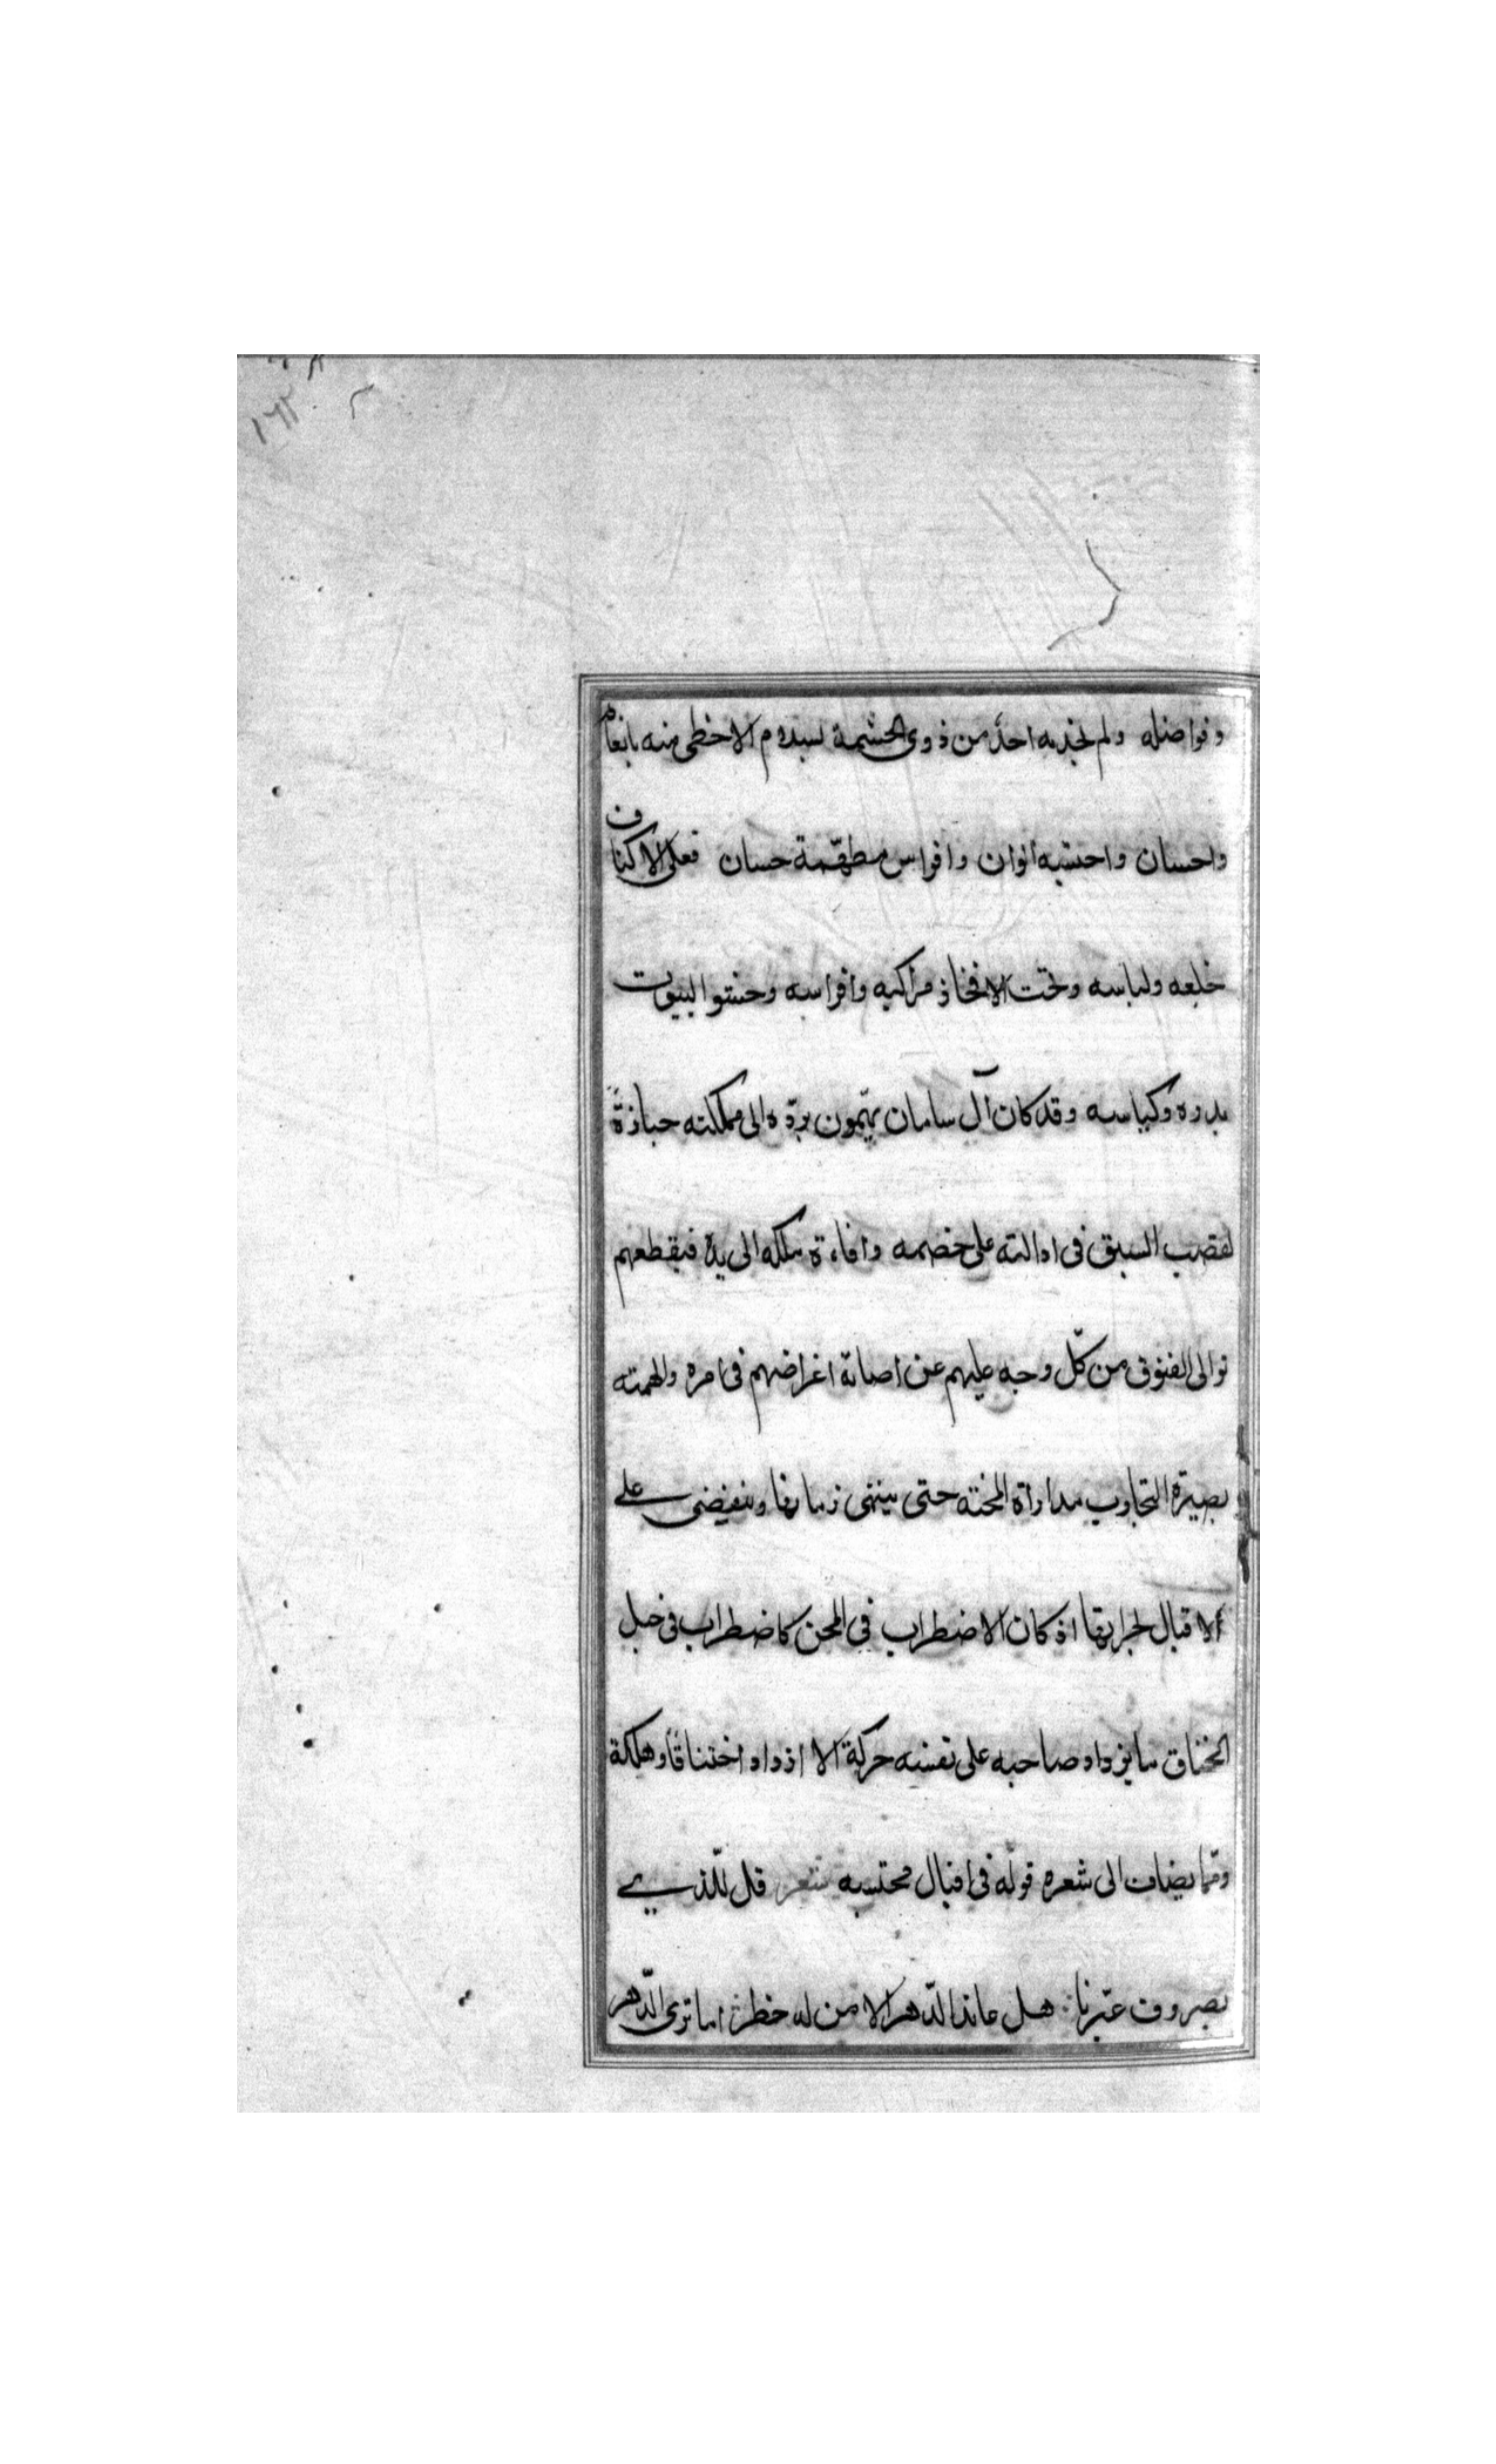 وفواضله ولم يخدمه احد من ذوى الحشمة لسيدوم الا حظى منه بانعام
واحسان واحشيه الوان وافراس مطهّمة حسان فعلى الاكتاف
خلعه ولباسه وتحت الافخاذ مراكبه وافراسه وحشو البيوت
بدوره وكياسه وقد كان آل سامان يهتمون بردّه الى مملكته حيازةً
لقصب السبق فى ادالته على خصمه وافاءة ملكه الى يده فيقطعهم
توالى الفتوق من كلّ وجه عليهم عن اصابة اغراضهم فى امره والهمته
بصيرة التجارب مداراة المحنة حتى ينتهى زمانها وينقضى على
الاقبال لجرانها اذ كان الاضطراب فى المحن كاضطراب فى حبل
الخناق ما يزداد صاحبه على نفسه حركة الا ازداد اختناقاً وهلكة
وممّا يضاف الى شعره قوله فى اقبال محتسبه شعر قل للّذى
بصروف عيّرنا هل عاند الدّهر الا من له خطر اما ترى الدّهر
١٦٢